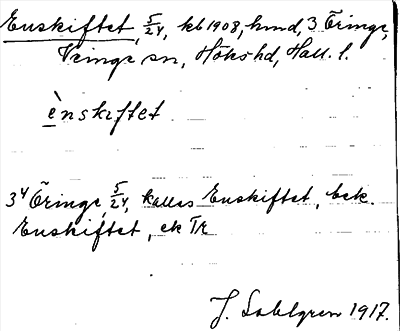 Enskiftet, 5/24, kb 1908, hmd, 3 Öringe,
Veinge sn, Höks hd, Hall. l.
ènskiftet
3⁴ Öringe, 5/24, kallas Enskiftet, bek.
Enskiftet, ek Tr
J. Sahlgren 1917.